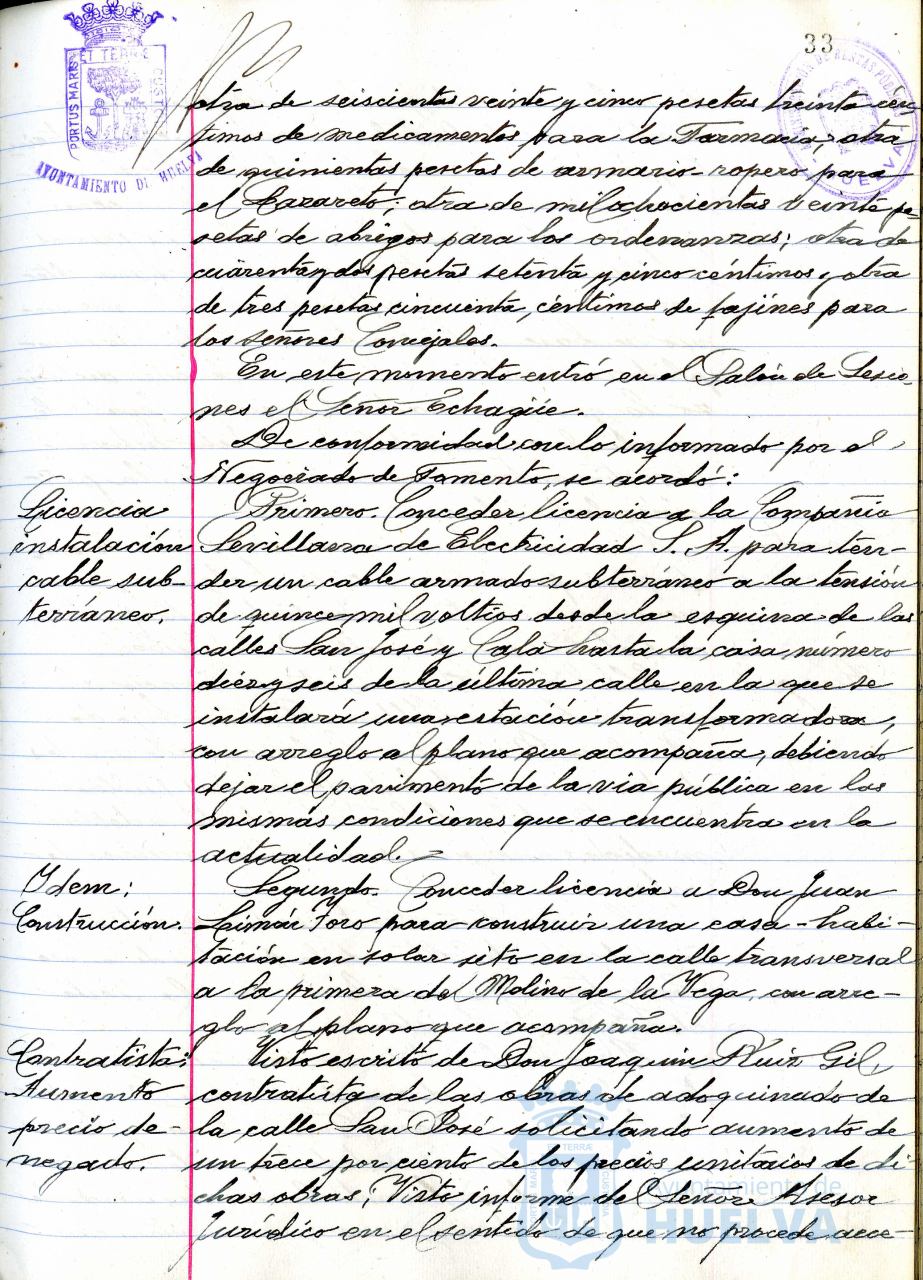 33
PORTUS MARIS
ET TERRÆ
CUSTODIA
AYUNTAMIENTO DE HUELVA
otra de seiscientas veinte y cinco pesetas treinta cén
timos de medicamentos para la Farmacia; otra
de quinientas pesetas de armario-ropero para
el Lazareto; otra de mil ochocientas veinte pe-
setas de abrigos para los ordenanzas; otra de
cuarenta y dos pesetas setenta y cinco céntimos y otra
de tres pesetas cincuenta céntimos de fajines para
los señores Concejales.
En este momento entró en el Salón de Sesio-
nes el Señor Echagüe.
De conformidad con lo informado por el
Negociado de Fomento, se acordó:
Licencia
instalación
cable sub-
terráneo.
Primero. Conceder licencia a la Compañia
Sevillana de Electricidad S. A. para ten-
der un cable armado subterráneo a la tensión
de quince mil voltios desde la esquina de las
calles San José y Cala hasta la casa número
diez y seis de la última calle en la que se
instalará una estación transformadora,
con arreglo al plano que acompaña, debiendo
dejar el pavimento de la via pública en las
mismas condiciones que se encuentra en la
actualidad.
Idem:
Construcción.
Segundo. Conceder licencia a Don Juan
Toro para construir una casa-habi-
tación en solar sito en la calle transversal
a la primera del Molino de la Vega, con arre-
glo al plano que acompaña.
Contratista:
Aumento
precio de-
negado.
Visto escrito de Don Joaquin Ruiz Gil,
contratista de las obras de adoquinado de
la calle San José solicitando aumento de
un trece por ciento de los precios unitarios de di
chas obras; Visto informe del Señor Asesor
Jurídico en el sentido de que no procede acce-
Ayuntamiento de
HUELVA